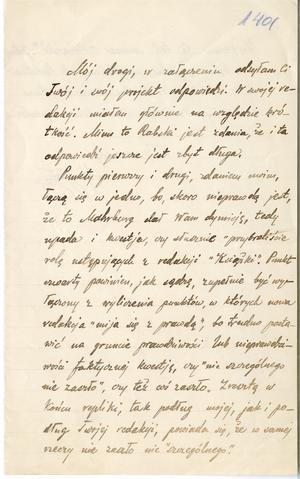 1401
Mój drogi, w załączeniu odsyłam Ci
Twój i swój projekt odpowiedzi. W swojej re-
dakcji miałam głównie na względzie krót-
kość. Mimo to Rabski jest zdania, że i ta
odpowiedź jeszcze jest zbyt długa.
Punkty pierwszy i drugi, zdaniem moim,
łączą się w jedno, bo, skoro nieprawdą jest,
że to Mahrburg dał Wam dymisję, tedy
upada i kwestja, czy słusznie "przybraliście
rolę ustępujących z redakcji "Książki". Punkt
czwarty powinien, jak sądzę, zupełnie być wy-
łączony z wyliczenia punktów, w których nowa
redakcja "mija się z prawdą", bo trudno posta-
wić na gruncie prawdziwości lub nieprawdzi-
wości faktycznej kwestję, czy "nic szczególnego
nie zaszło", czy też coś zaszło. Zresztą w
końcu repliki, tak podług mojej, jak i po-
dług Twojej redakcji, powiada się, że w samej
rzeczy nie zaszło nic "szczególnego".